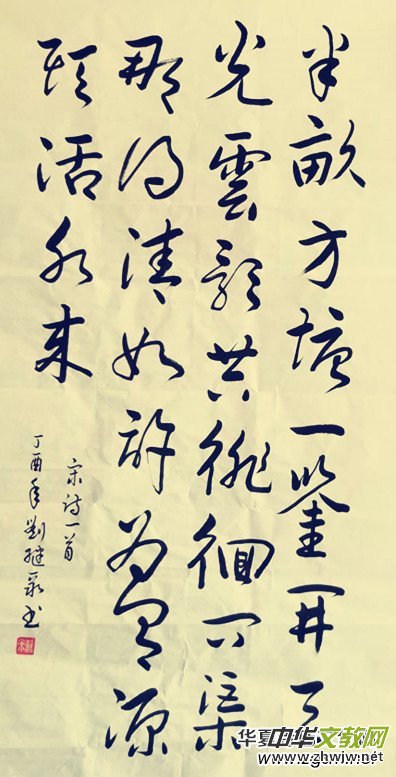 半畝方塘一鑒開天
光雲影共徘徊问渠
那得清如許为有源
頭活水來
宋诗一首
丁酉年劉继书
华夏
中华文教网
www.zhwjw.net